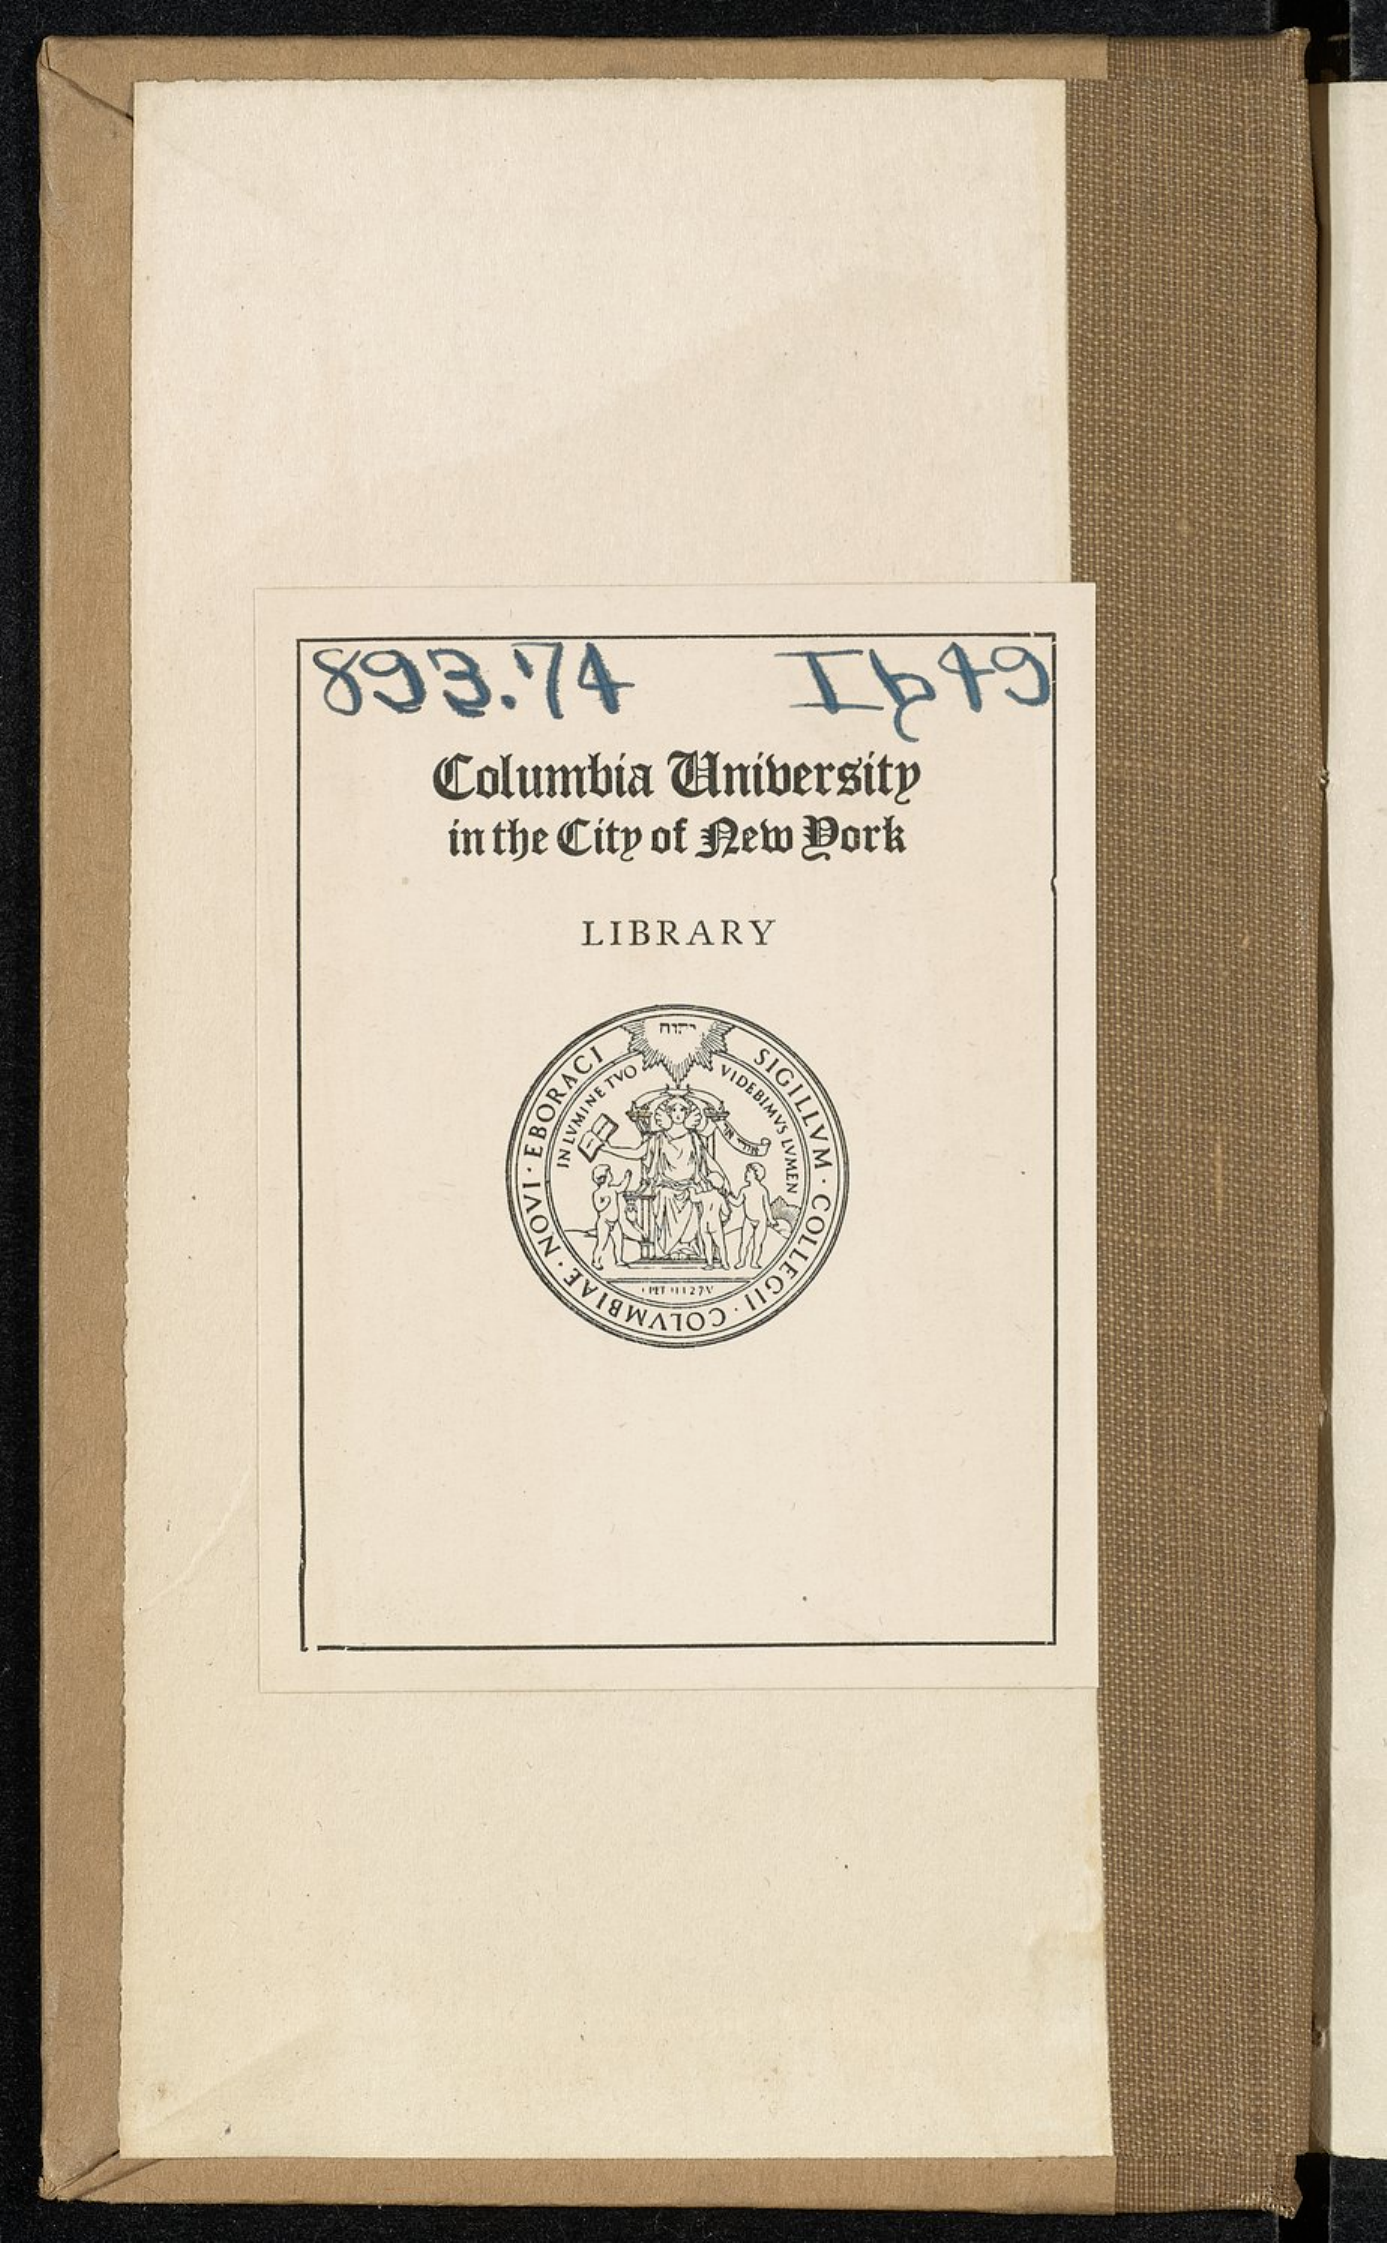 893.74 Ib49
Columbia University
in the City of New York
LIBRARY
יהוה
SIGILLVM · COLLEGII · COLVMBIAE · NOVI · EBORACI
IN LVMINE TVO VIDEBIMVS LVMEN